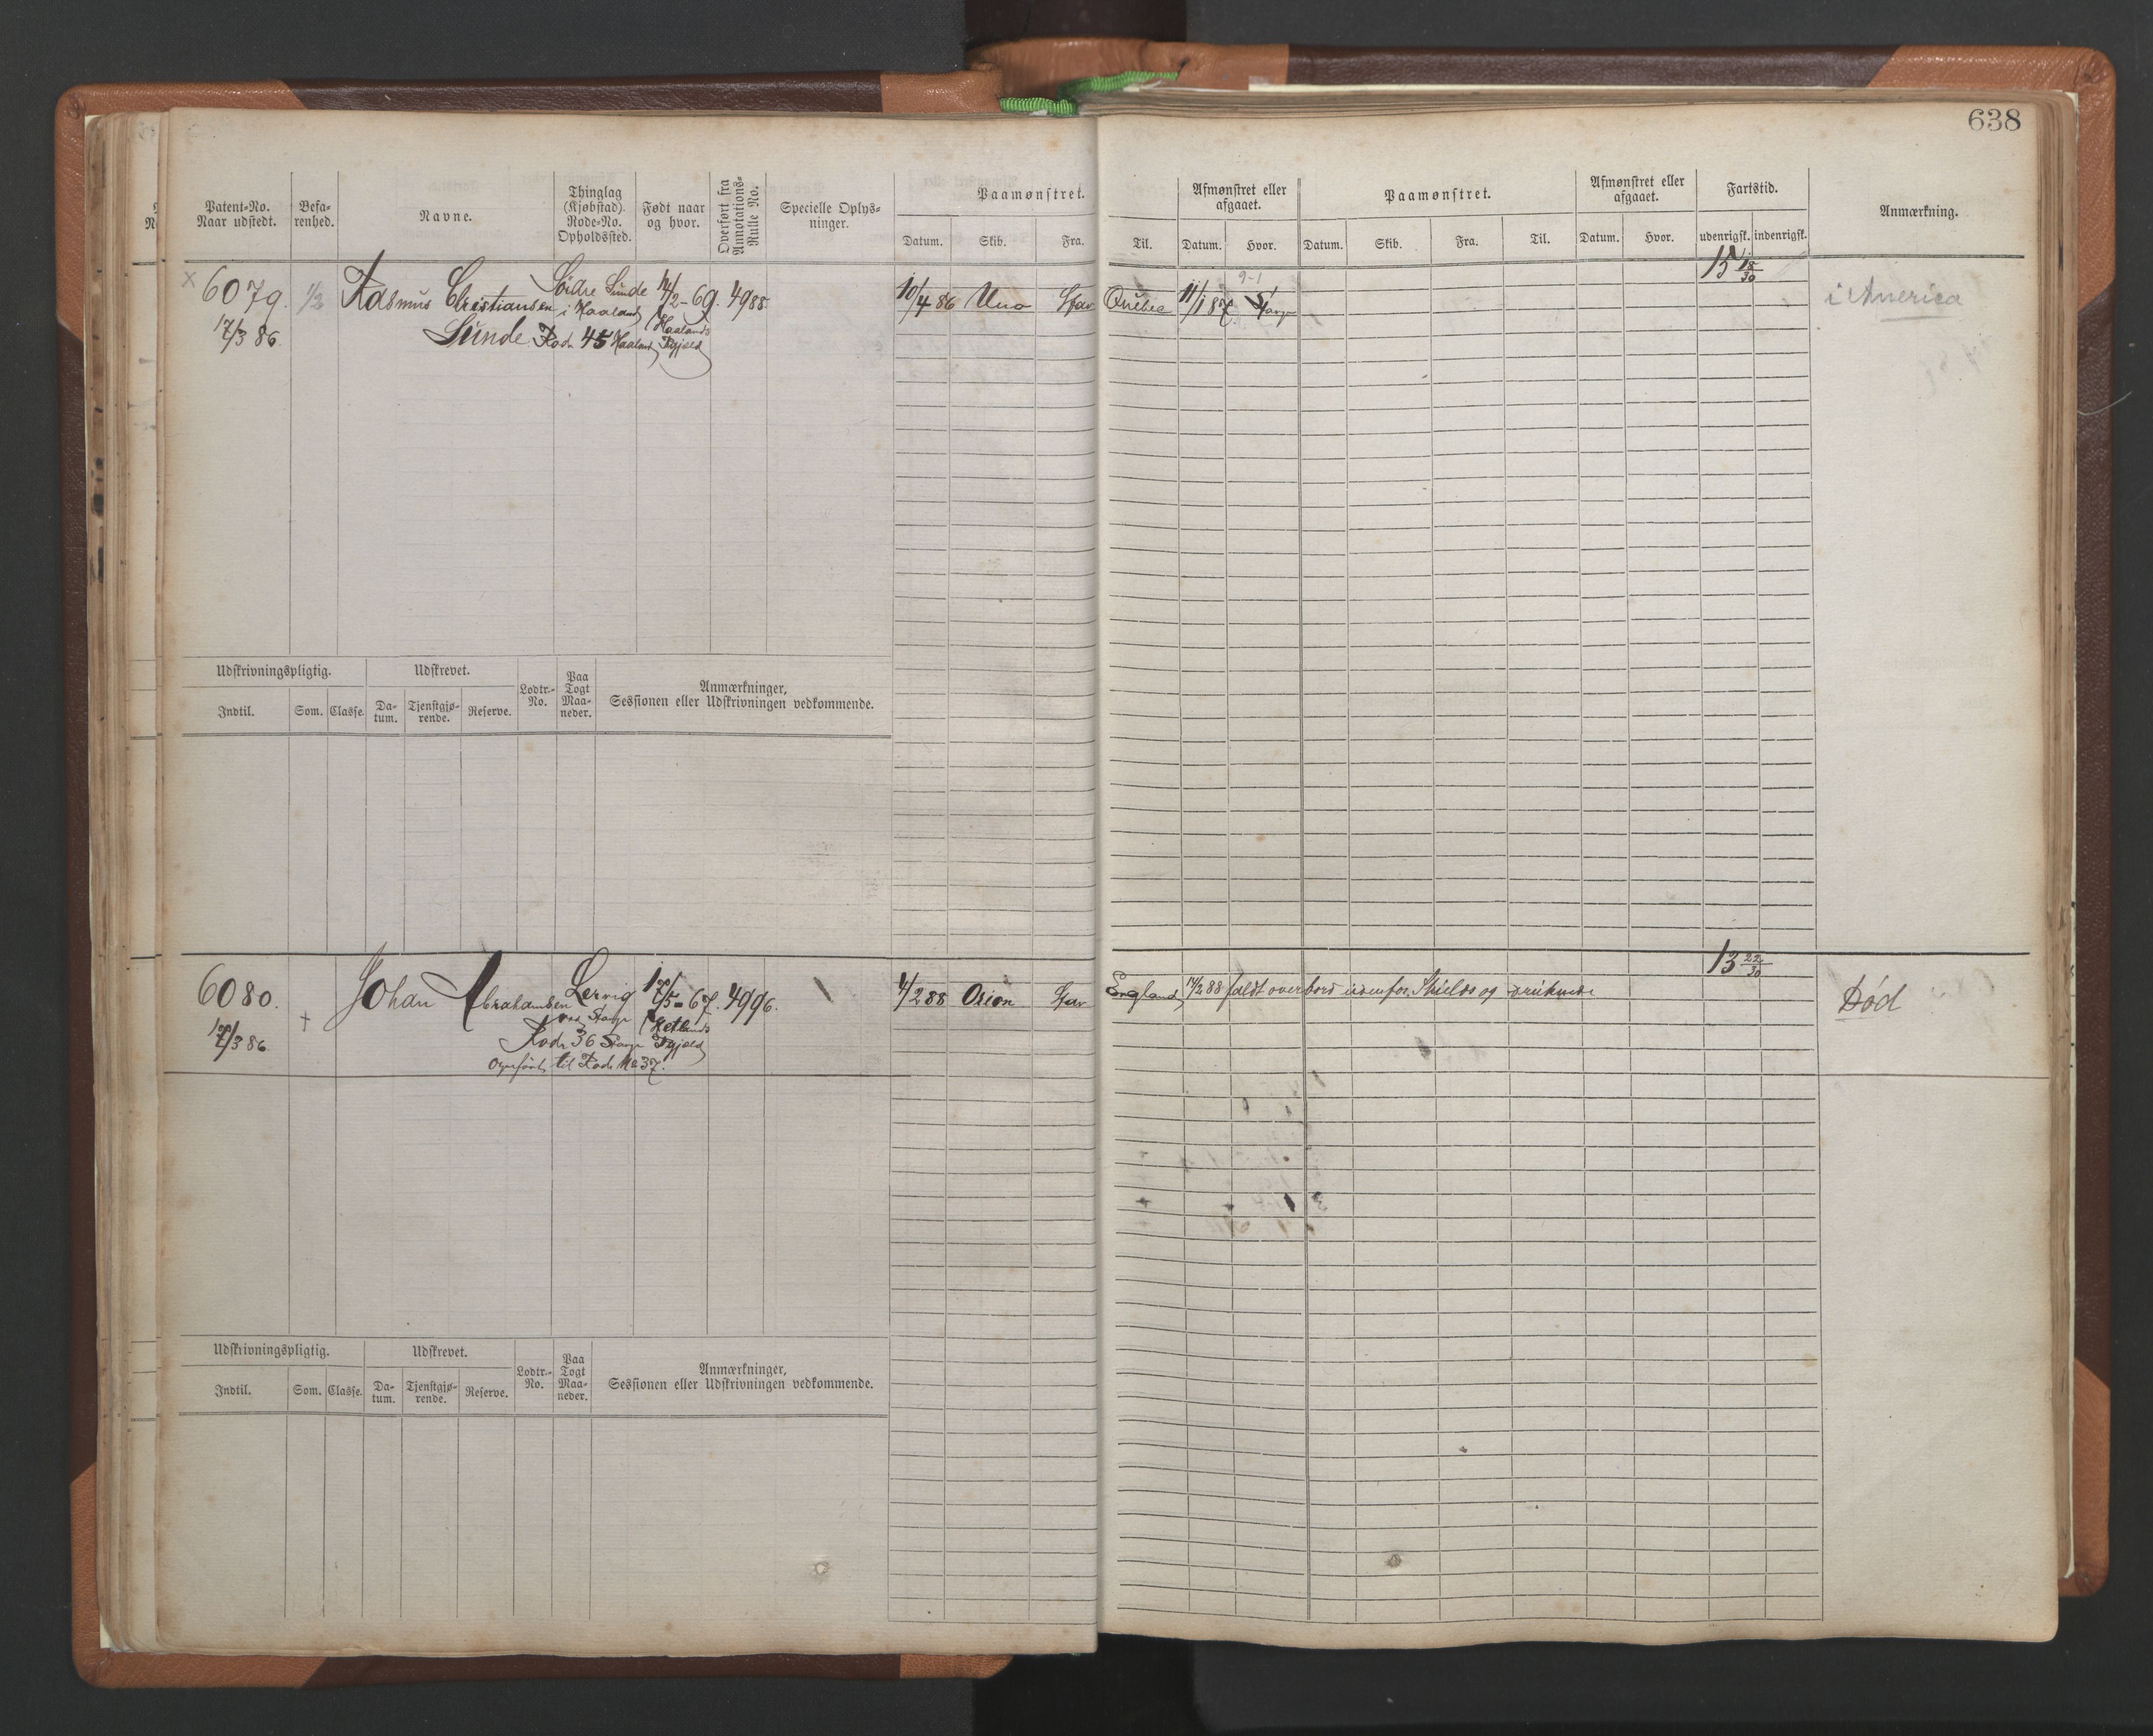 638
Patent-No.
Naar udstedt.
Befa-
renhed.
Navne.
Thinglag
(Kjøbstad).
Rode-No.
Opholdssted.
Født naar
og hvor.
Overført fra
Annotations-
Rulle No.
Specielle Oplys-
ninger.
Paamønstret.
Datum. Skib. Fra. Til.
Afmønstret eller
afgaaet.
Datum. Hvor.
Paamønstret.
Datum. Skib. Fra. Til.
Afmønstret eller
afgaaet.
Datum. Hvor.
Fartstid.
udenrigsk. indenrigsk.
Anmærkning.
15 18/30
× 6079. 1/2 Rasmus Christiansen Søidre Sunde 14/2-69. 4988 10/4 86 Uno Stav Quebec 11/1 87 9-1 Stavgr i America
17/3 86. i Haaland (Haalands
Sunde Rode 45 Haaland Pgjeld)
Udskrivningspligtig. Udskrevet.
Lodtr.-
No.
Paa
Togt
Maa-
neder.
Anmærkninger,
Sessionen eller Udskrivningen vedkommende.
Indtil. Som. Classe. Da-
tum. Tjenstgjø-
rende. Reserve.
13 22/30
6080. Johan Abrahamsen Lervig 17/5-67. 4996. 4/2 88 Orion Stav England 14/2 88 faldt overbord udenfor Shields og druknede Død
17/3 86. + ved Stavgr (Hetlands
Rode 36 Stavgr Pgjeld)
Overført til Rode No 37.
Udskrivningspligtig. Udskrevet.
Lodtr.-
No.
Paa
Togt
Maa-
neder.
Anmærkninger,
Sessionen eller Udskrivningen vedkommende.
Indtil. Som. Classe. Da-
tum. Tjenstgjø-
rende. Reserve.